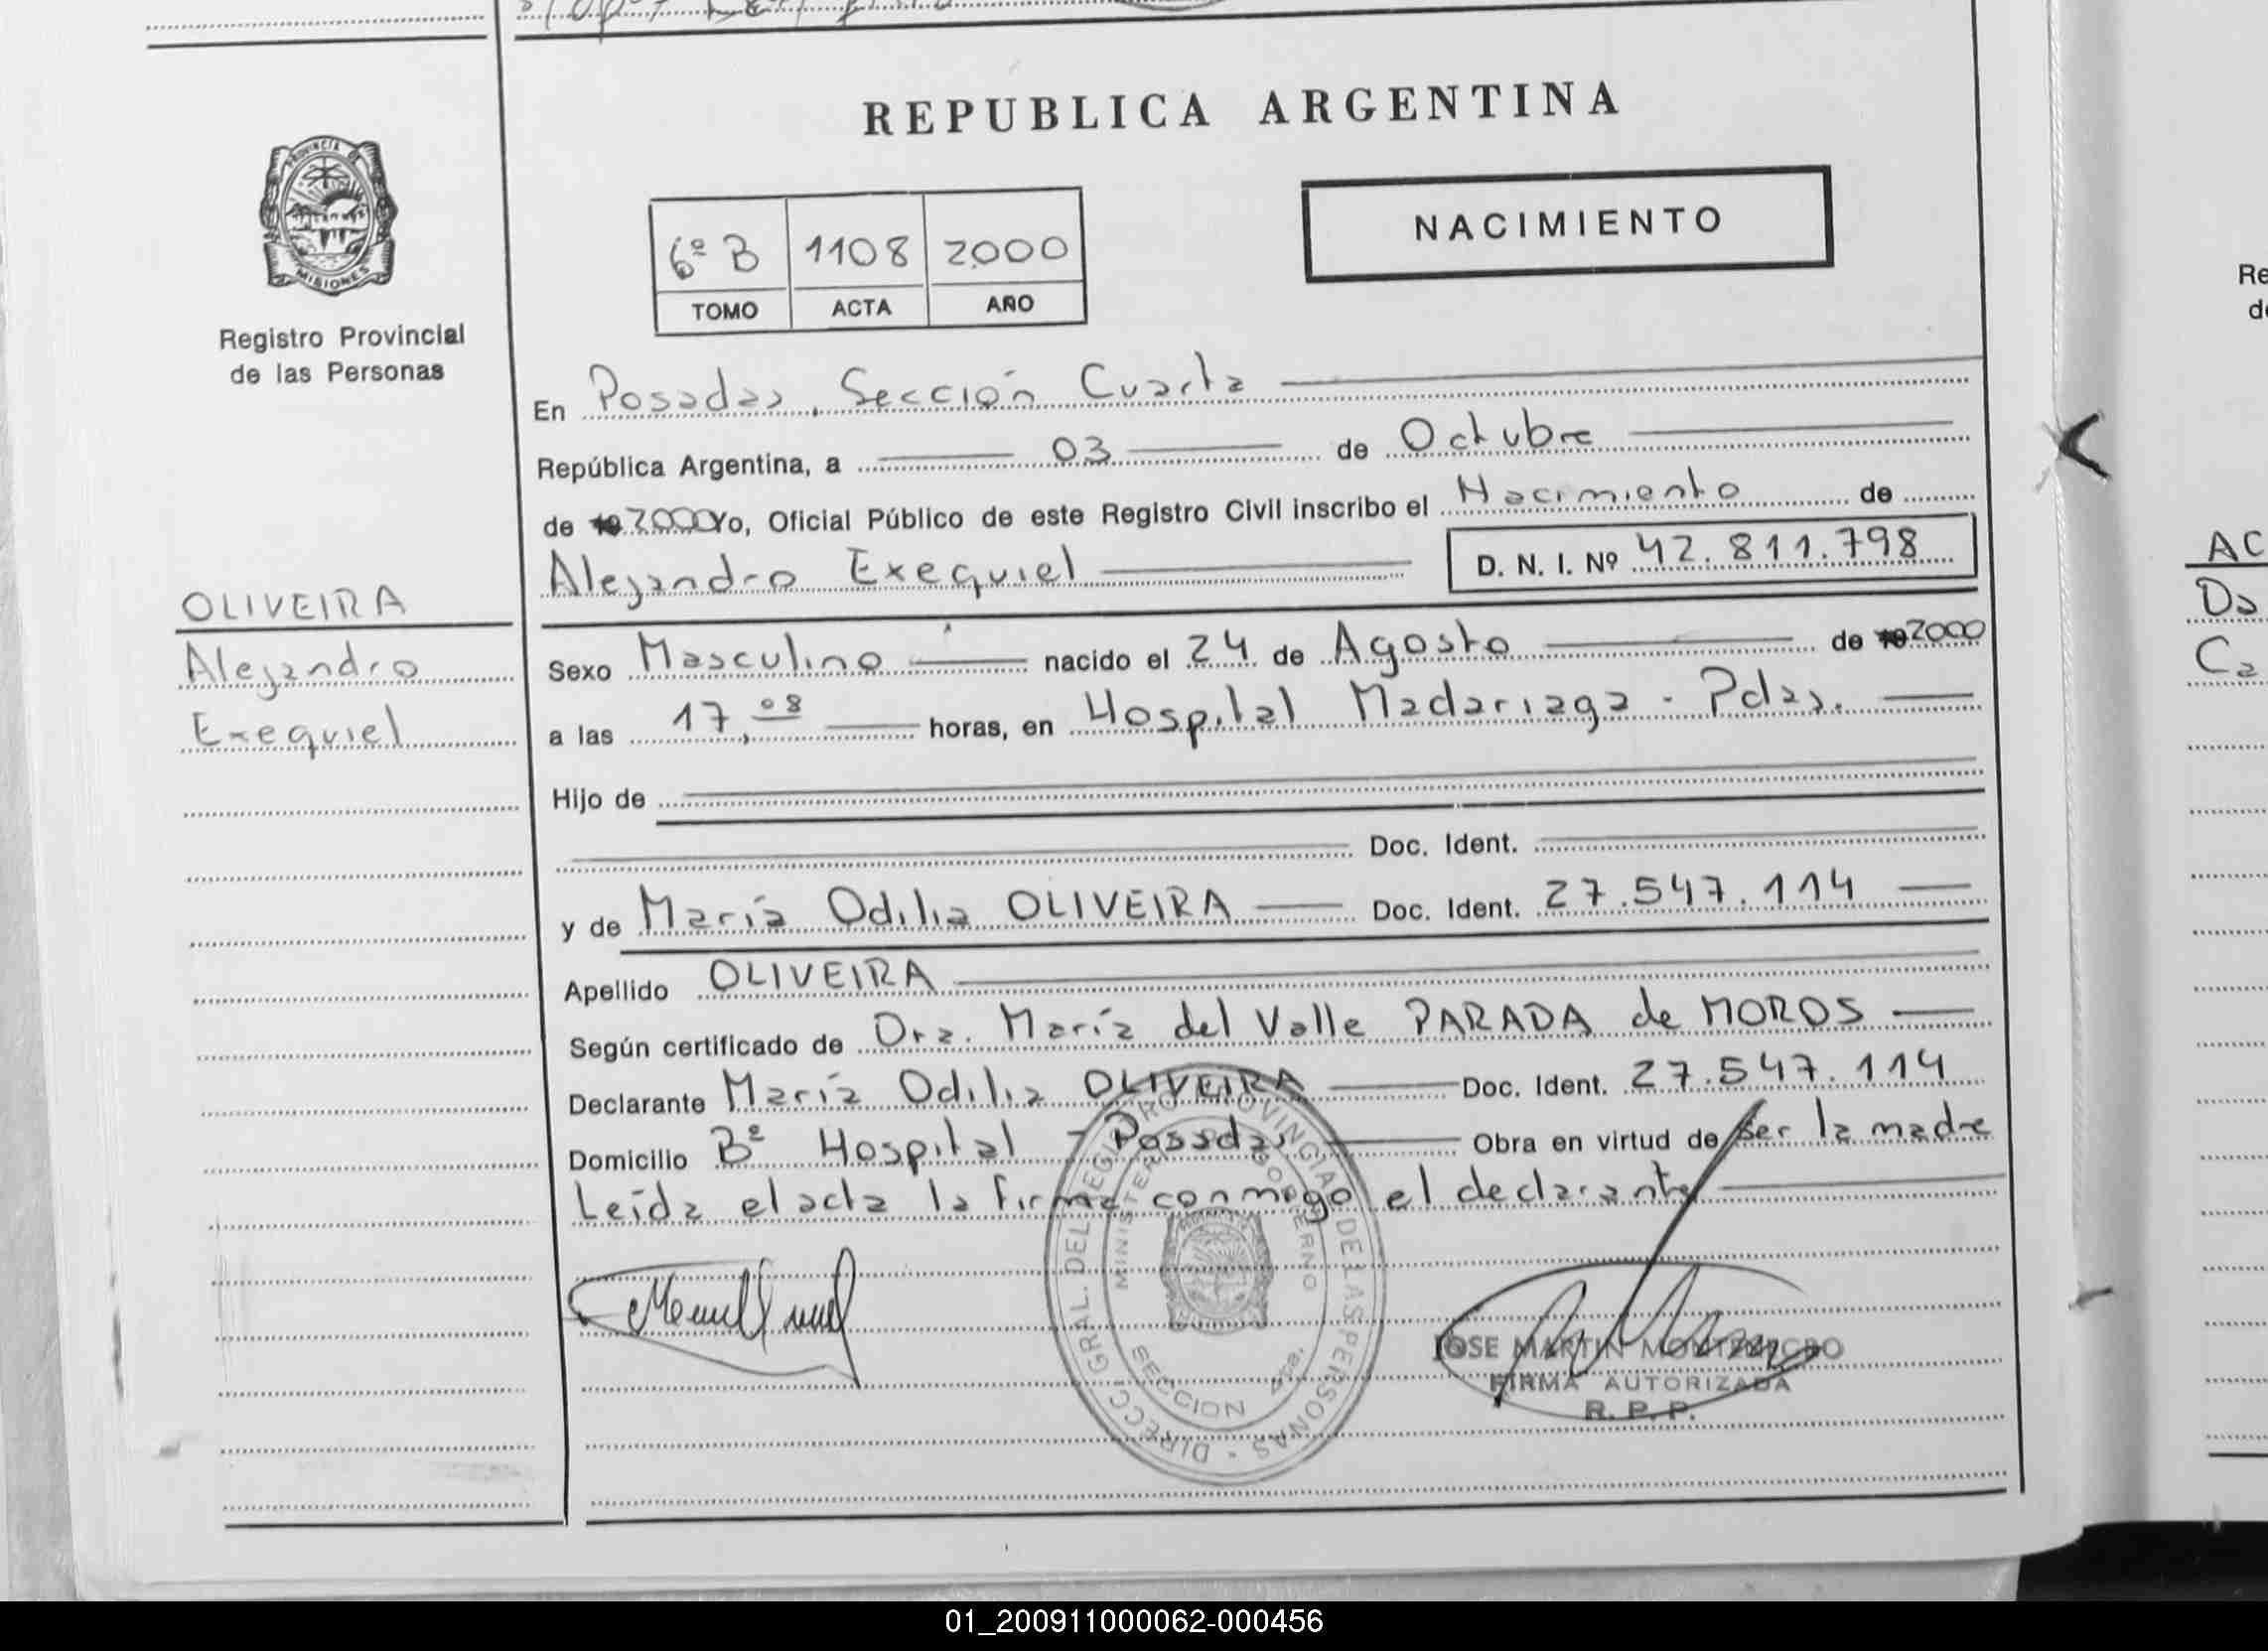 REPUBLICA ARGENTINA
PROVINCIA DE
MISIONES
Registro Provincial
de las Personas
NACIMIENTO
6º B 1108 2000
TOMO ACTA AÑO
En Posadas, Sección Cuarta
República Argentina, a 03 de Octubre
de 19 2000 Yo, Oficial Público de este Registro Civil inscribo el Nacimiento de
Alejandro Exequiel D. N. I. Nº 42.811.798
OLIVEIRA
Alejandro
Exequiel
Sexo Masculino nacido el 24 de Agosto de 19 2000
a las 17,08 horas, en Hospital Madariaga - Pdas.
Hijo de
Doc. Ident.
y de María Odilia OLIVEIRA Doc. Ident. 27.547.114
Apellido OLIVEIRA
Según certificado de Dra. María del Valle PARADA de MOROS
Declarante María Odilia OLIVEIRA Doc. Ident. 27.547.114
Domicilio Bº Hospital - Posadas Obra en virtud de ser la madre
Leída el acta la firma conmigo el declarante
DIRECC. GRAL. DEL REGISTRO PROVINCIAL DE LAS PERSONAS -
MINISTERIO DE GOBIERNO
SECCION 4ta.
JOSE MARTIN MONTENEGRO
FIRMA AUTORIZADA
R. P. P.
Re
de
AC
Da
Ca
01_200911000062-000456